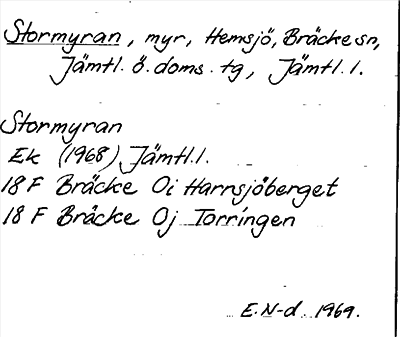 Stormyran, myr, Hemsjö, Bräcke sn,
Jämtl. ö. doms. tg, Jämtl. l.
Stormyran
Ek (1968) Jämtl. l.
18 F Bräcke 0i Harnsjöberget
18 F Bräcke 0j Torringen
E. N-d. 1969.